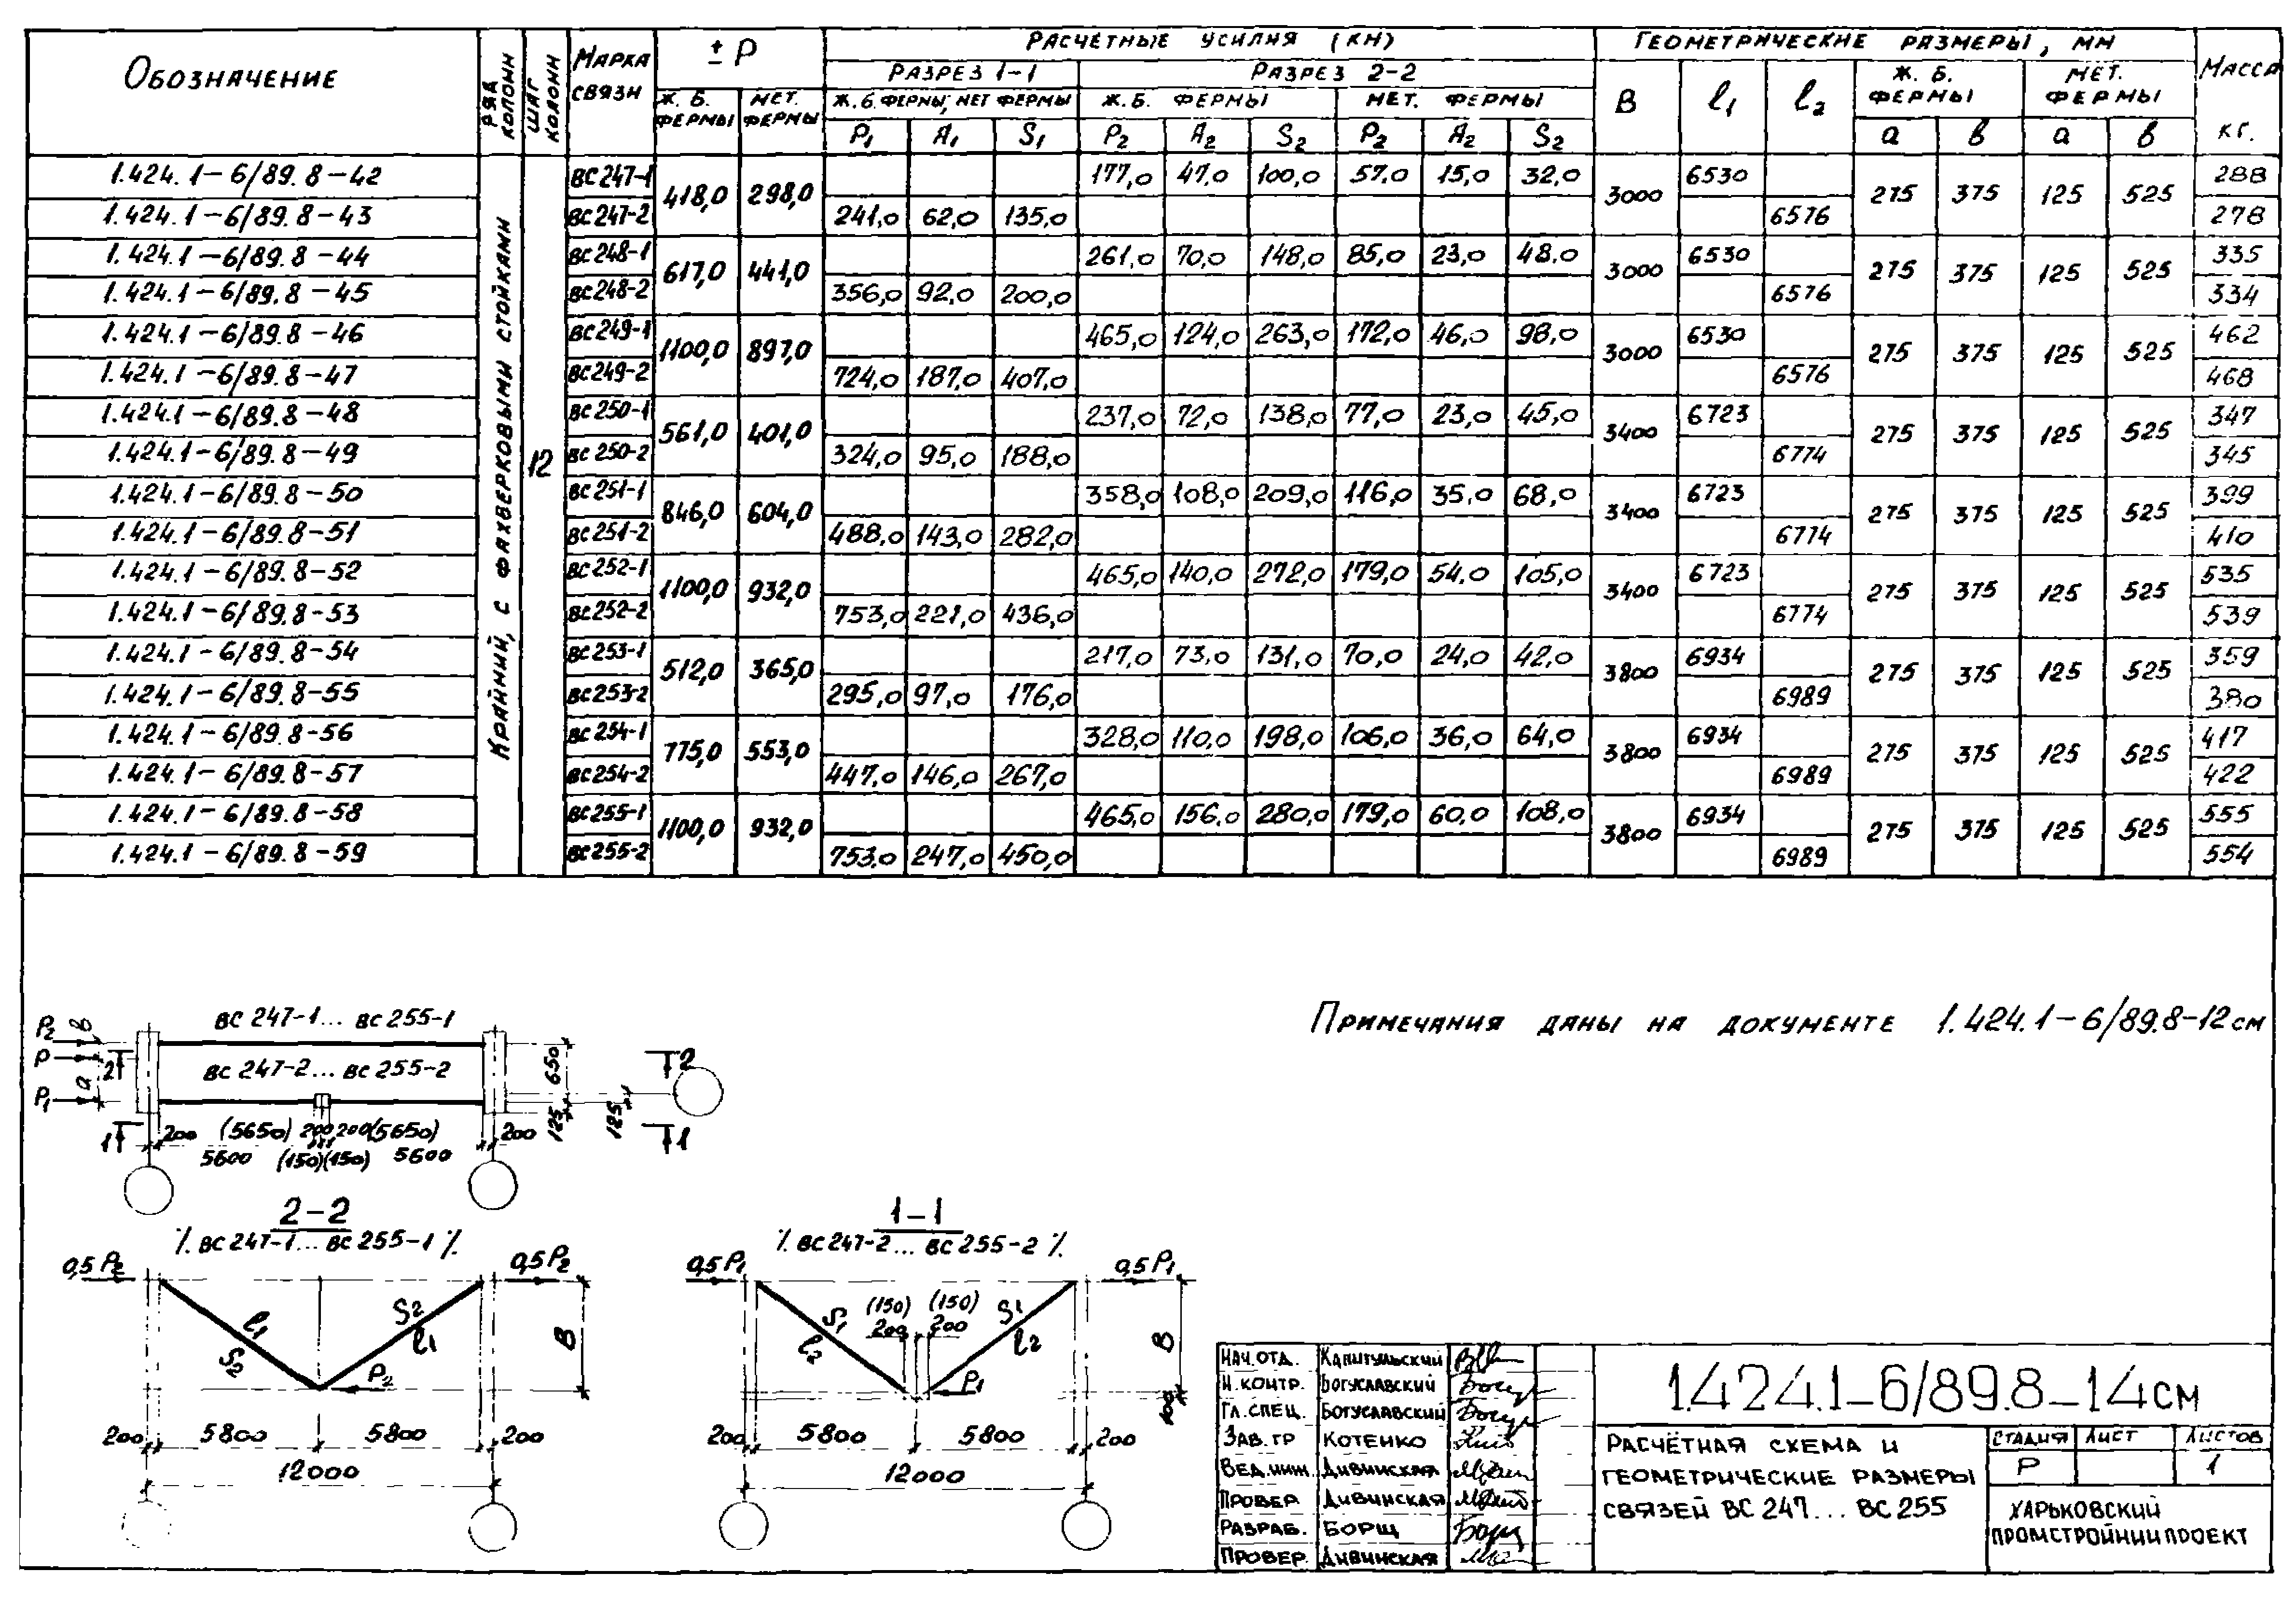 Обозначение
Ряд колонн
Шаг колонн
Марка связи
± P
Расчётные усилия (кн)
Геометрические размеры, мм
Масса кг.
Ж.б. фермы
мет. фермы
Разрез 1-1
Разрез 2-2
Ж.б. фермы; мет фермы
Ж.б. фермы
мет. фермы
B
l1
l2
Ж.б. фермы
мет. фермы
P1 A1 S1 P2 A2 S2 P2 A2 S2 а в а в
Крайний, с фахверковыми стойками
12
1.424.1-6/89.8-42 ВС247-1 418,0 298,0 177,0 47,0 100,0 57,0 15,0 32,0 3000 6530 275 375 125 525 288
1.424.1-6/89.8-43 ВС247-2 241,0 62,0 135,0 6576 278
1.424.1-6/89.8-44 ВС248-1 617,0 441,0 261,0 70,0 148,0 85,0 23,0 48,0 3000 6530 275 375 125 525 335
1.424.1-6/89.8-45 ВС248-2 356,0 92,0 200,0 6576 334
1.424.1-6/89.8-46 ВС249-1 1100,0 897,0 465,0 124,0 263,0 172,0 46,0 98,0 3000 6530 275 375 125 525 462
1.424.1-6/89.8-47 ВС249-2 724,0 187,0 407,0 6576 468
1.424.1-6/89.8-48 ВС250-1 561,0 401,0 237,0 72,0 138,0 77,0 23,0 45,0 3400 6723 275 375 125 525 347
1.424.1-6/89.8-49 ВС250-2 324,0 95,0 188,0 6774 345
1.424.1-6/89.8-50 ВС251-1 846,0 604,0 358,0 108,0 209,0 116,0 35,0 68,0 3400 6723 275 375 125 525 399
1.424.1-6/89.8-51 ВС251-2 488,0 143,0 282,0 6774 410
1.424.1-6/89.8-52 ВС252-1 1100,0 932,0 465,0 140,0 272,0 179,0 54,0 105,0 3400 6723 275 375 125 525 535
1.424.1-6/89.8-53 ВС252-2 753,0 221,0 436,0 6774 539
1.424.1-6/89.8-54 ВС253-1 512,0 365,0 217,0 73,0 131,0 70,0 24,0 42,0 3800 6934 275 375 125 525 359
1.424.1-6/89.8-55 ВС253-2 295,0 97,0 176,0 6989 380
1.424.1-6/89.8-56 ВС254-1 775,0 553,0 328,0 110,0 198,0 106,0 36,0 64,0 3800 6934 275 375 125 525 417
1.424.1-6/89.8-57 ВС254-2 447,0 146,0 267,0 6989 422
1.424.1-6/89.8-58 ВС255-1 1100,0 932,0 465,0 156,0 280,0 179,0 60,0 108,0 3800 6934 275 375 125 525 555
1.424.1-6/89.8-59 ВС255-2 753,0 247,0 450,0 6989 554
Примечания даны на документе 1.424.1-6/89.8-12см
ВС 247-1... ВС 255-1
P2 в
P 2 650 2
ВС 247-2... ВС 255-2
P1 а
125 125
1 200 (5650) 200 200 (5650) 200 1
5600 (150)(150) 5600
2-2
/. ВС 247-1... ВС 255-1 /.
0,5 P2 0,5 P2
l1 S2 S2 l1 B
P2
200 5800 5800 200
12000
1-1
/. ВС 247-2... ВС 255-2 /.
0,5 P1 0,5 P1
(150) (150)
200 200
S1 l2 S1 l2 B
P1 100
200 5800 5800 200
12000
Нач.отд. Капитульский
Н.контр. Богуславский
Гл.спец. Богуславский
Зав.гр Котенко
Вед.инж. Дивинская
Провер Дивинская
Разраб. Борщ
Провер. Дивинская
1.424.1-6/89.8-14см
Расчётная схема и
геометрические размеры
связей ВС 247... ВС 255
Стадия Лист Листов
Р 1
Харьковский
Промстройниипроект